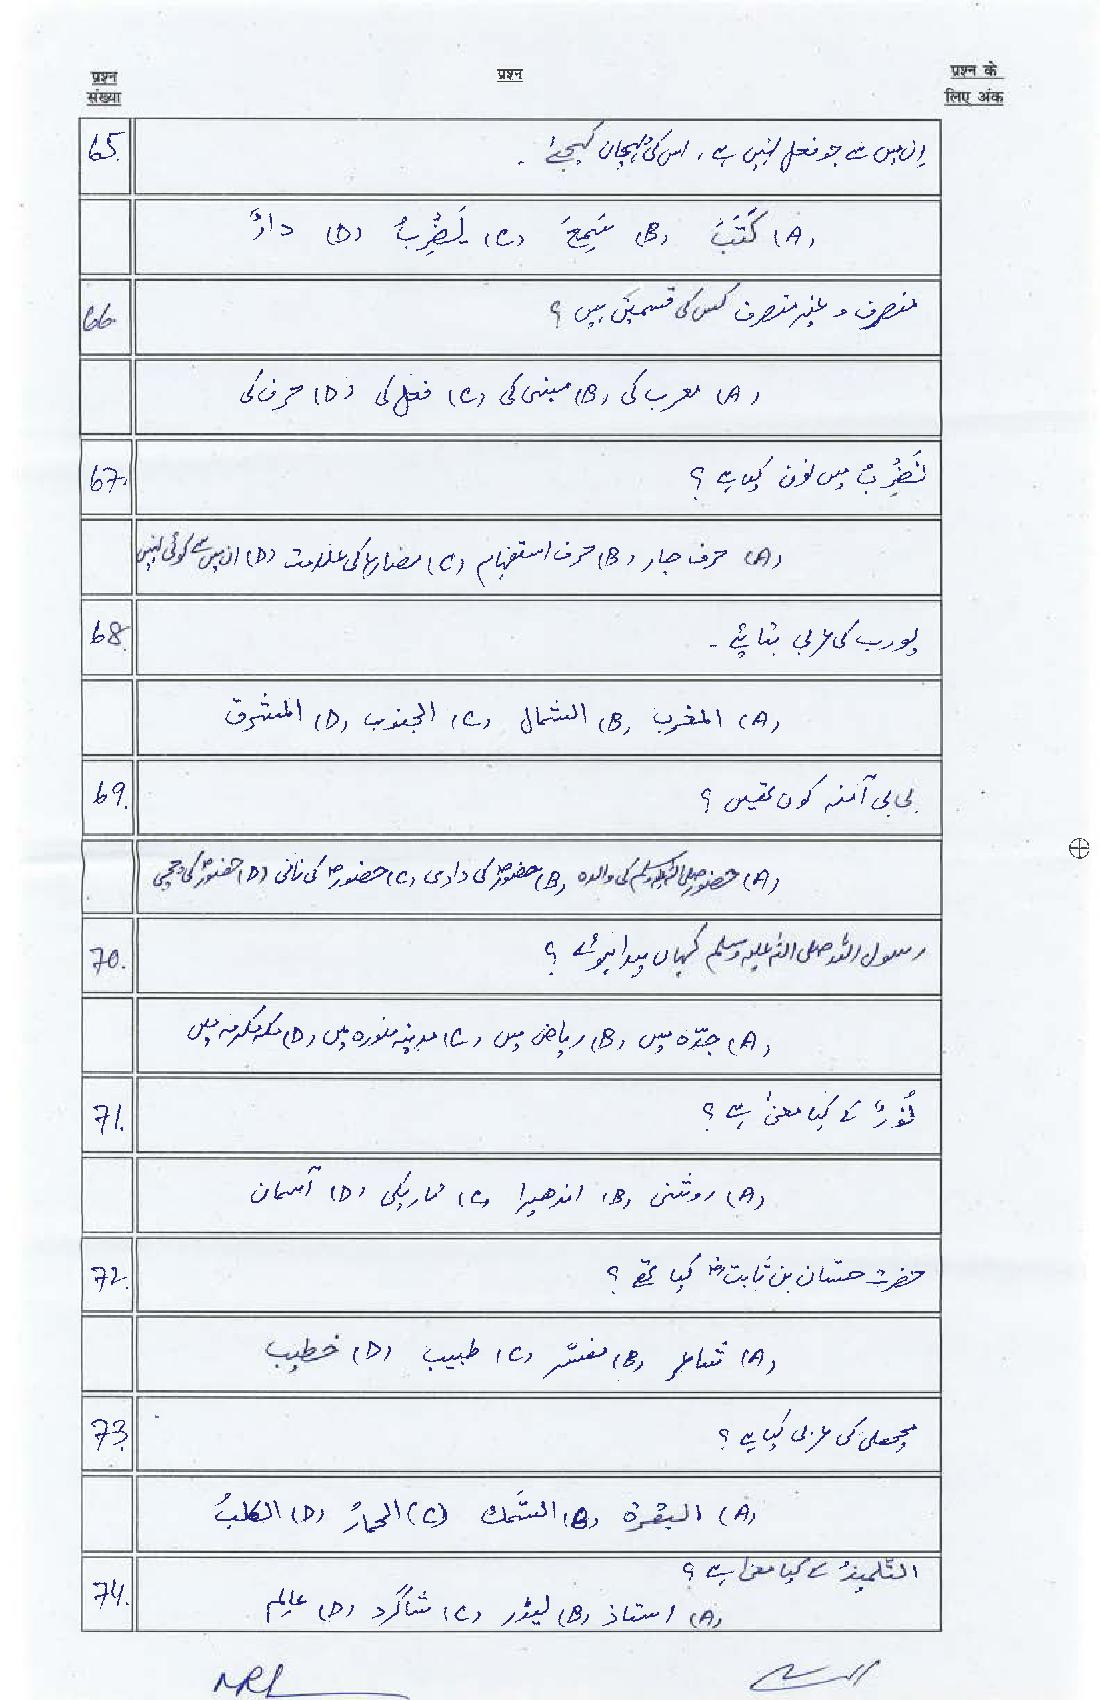 प्रश्न संख्या
प्रश्न
प्रश्न के लिए अंक
65. ان میں سے جو فعل نہیں ہے، اس کی پہچان کیجئے۔
(A) كَتَبَ (B) سَمِعَ (C) يَضْرِبُ (D) دارٌ
66. منصرف و غیر منصرف کس کی قسمیں ہیں ؟
(A) معرب کی (B) مبنی کی (C) فعل کی (D) حرف کی
67. نَضْرِبُ میں نون کیا ہے ؟
(A) حرف جار (B) حرف استفہام (C) مضارع کی علامت (D) ان میں سے کوئی نہیں
68. پورب کی عربی بتائیے ۔
(A) المغرب (B) الشمال (C) الجنوب (D) المشرق
69. بی بی آمنہ کون تھیں ؟
(A) حضور صلی اللہ علیہ وسلم کی والدہ (B) حضورؐ کی دادی (C) حضورؐ کی نانی (D) حضورؐ کی چچی
70. رسول اللہ صلی اللہ علیہ وسلم کہاں پیدا ہوئے ؟
(A) جدّہ میں (B) ریاض میں (C) مدینہ منورہ میں (D) مکہ مکرمہ میں
71. نُورٌ کے کیا معنیٰ ہے ؟
(A) روشنی (B) اندھیرا (C) تاریکی (D) آسمان
72. حضرت حسّان بن ثابتؓ کیا تھے ؟
(A) شاعر (B) مفسّر (C) طبیب (D) خطیب
73. مچھلی کی عربی کیا ہے ؟
(A) البقرة (B) السَّمك (C) الحمارُ (D) الكلبُ
74. التلميذُ کے کیا معنیٰ ہے ؟
(A) استاذ (B) لیڈر (C) شاگرد (D) عالِم